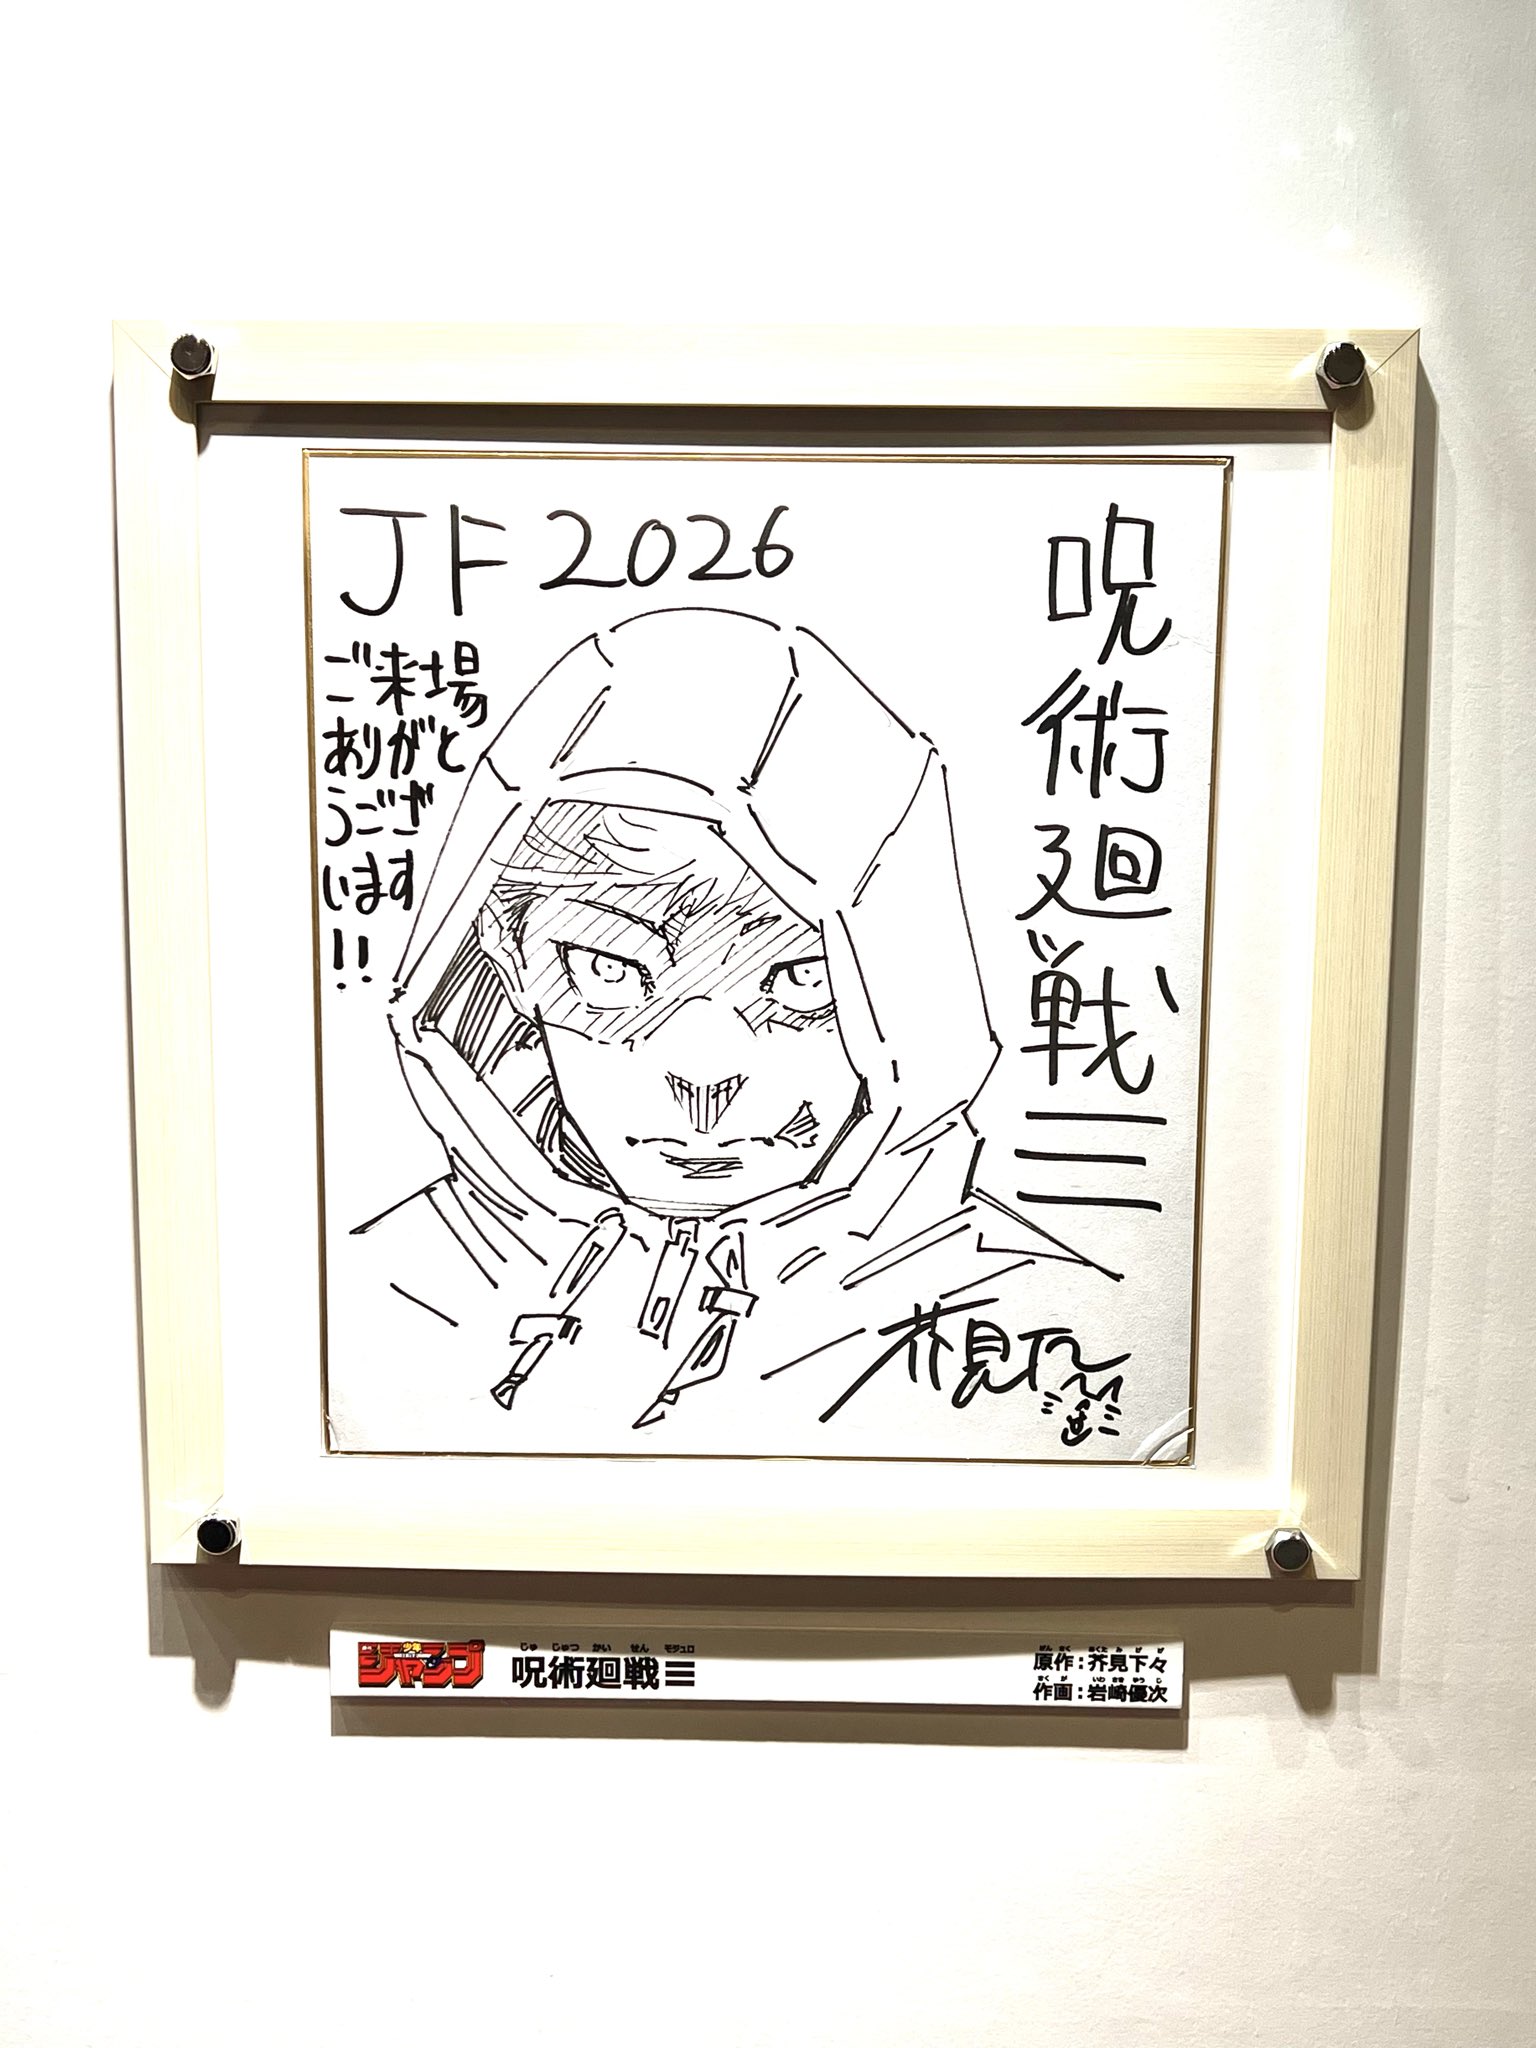 JF2026
ご来場
ありがと
うござ
います
!!
呪術廻戦≡
芥見下々
少年
ジャンプ
じゅ じゅつ かい せん モジュロ
呪術廻戦≡
げんさく あくた み げ げ
原作:芥見下々
さく が いわ さき ゆう じ
作画:岩崎優次